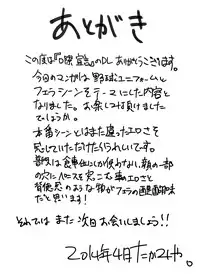 あとがき
この度は『口球宣言』のDLありがとうございます。
今回のマンガは野球ユニフォームと
フェラシーンをテーマにした内容と
なりました。お楽しみ頂けました
でしょうか。
本番シーンとはまた違ったエロさを
感じていただけたらうれしいです。
普段は食事にしか使わない、顔の一部
の穴にペニスを突こむ事のエロさと
背徳感のような物がフェラの醍醐味
だと思います!
それではまた次回お会いしましょう!!
2014年4月